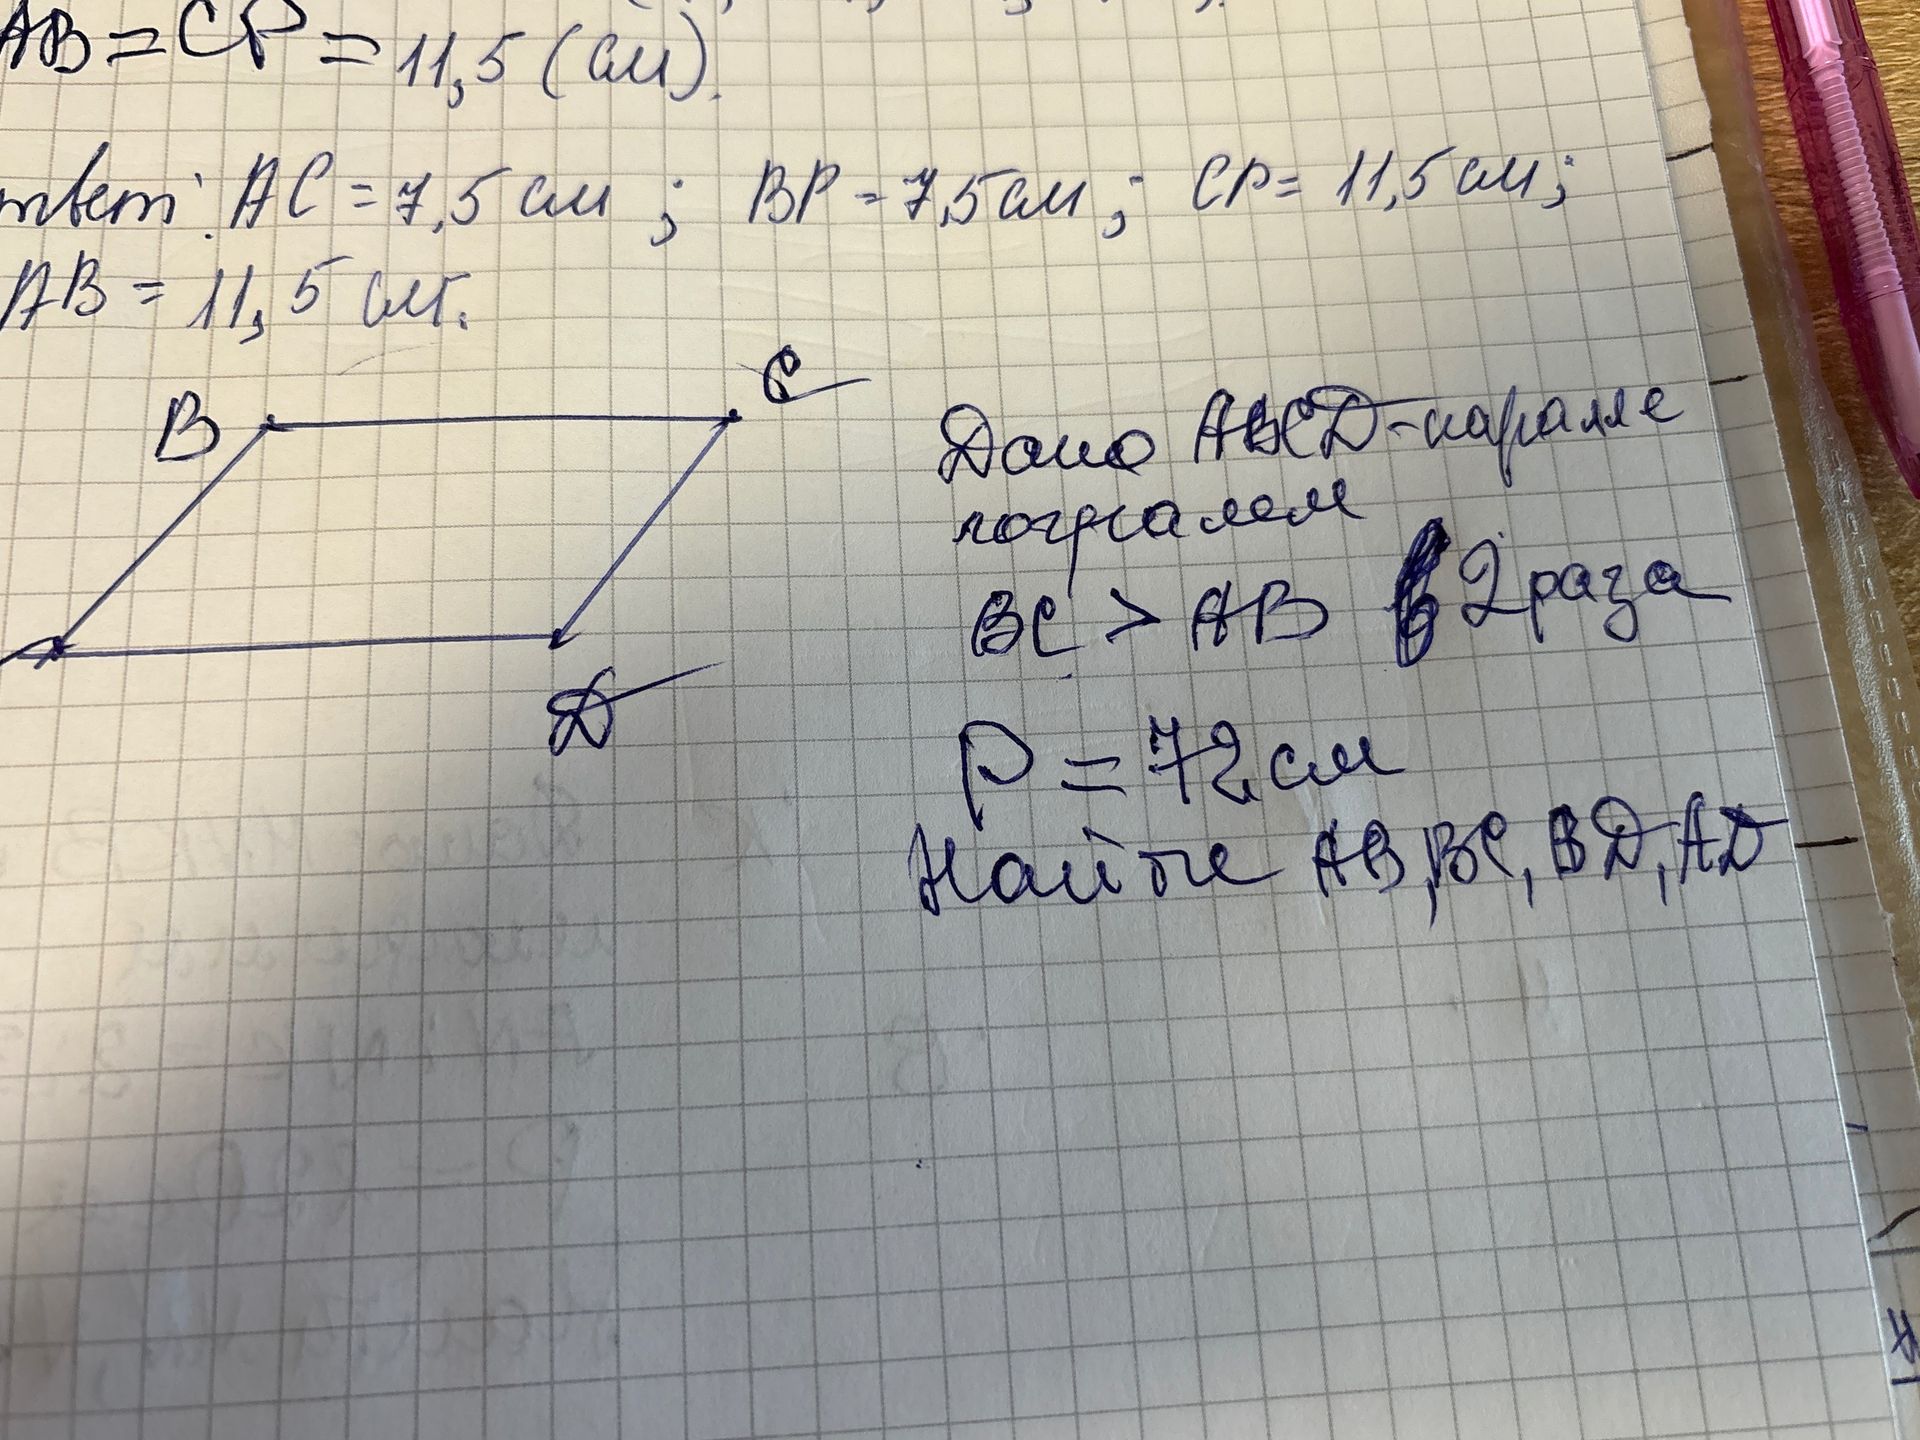 AB = CP = 11,5 (см).
твет: AC = 7,5 см ; BP = 7,5 см ; CP = 11,5 см ;
AB = 11,5 см.
B
C
D
Дано ABCD - паралле
лограмм
BC > AB в 2 раза
P = 72 см
Найти AB, BC, BD, AD